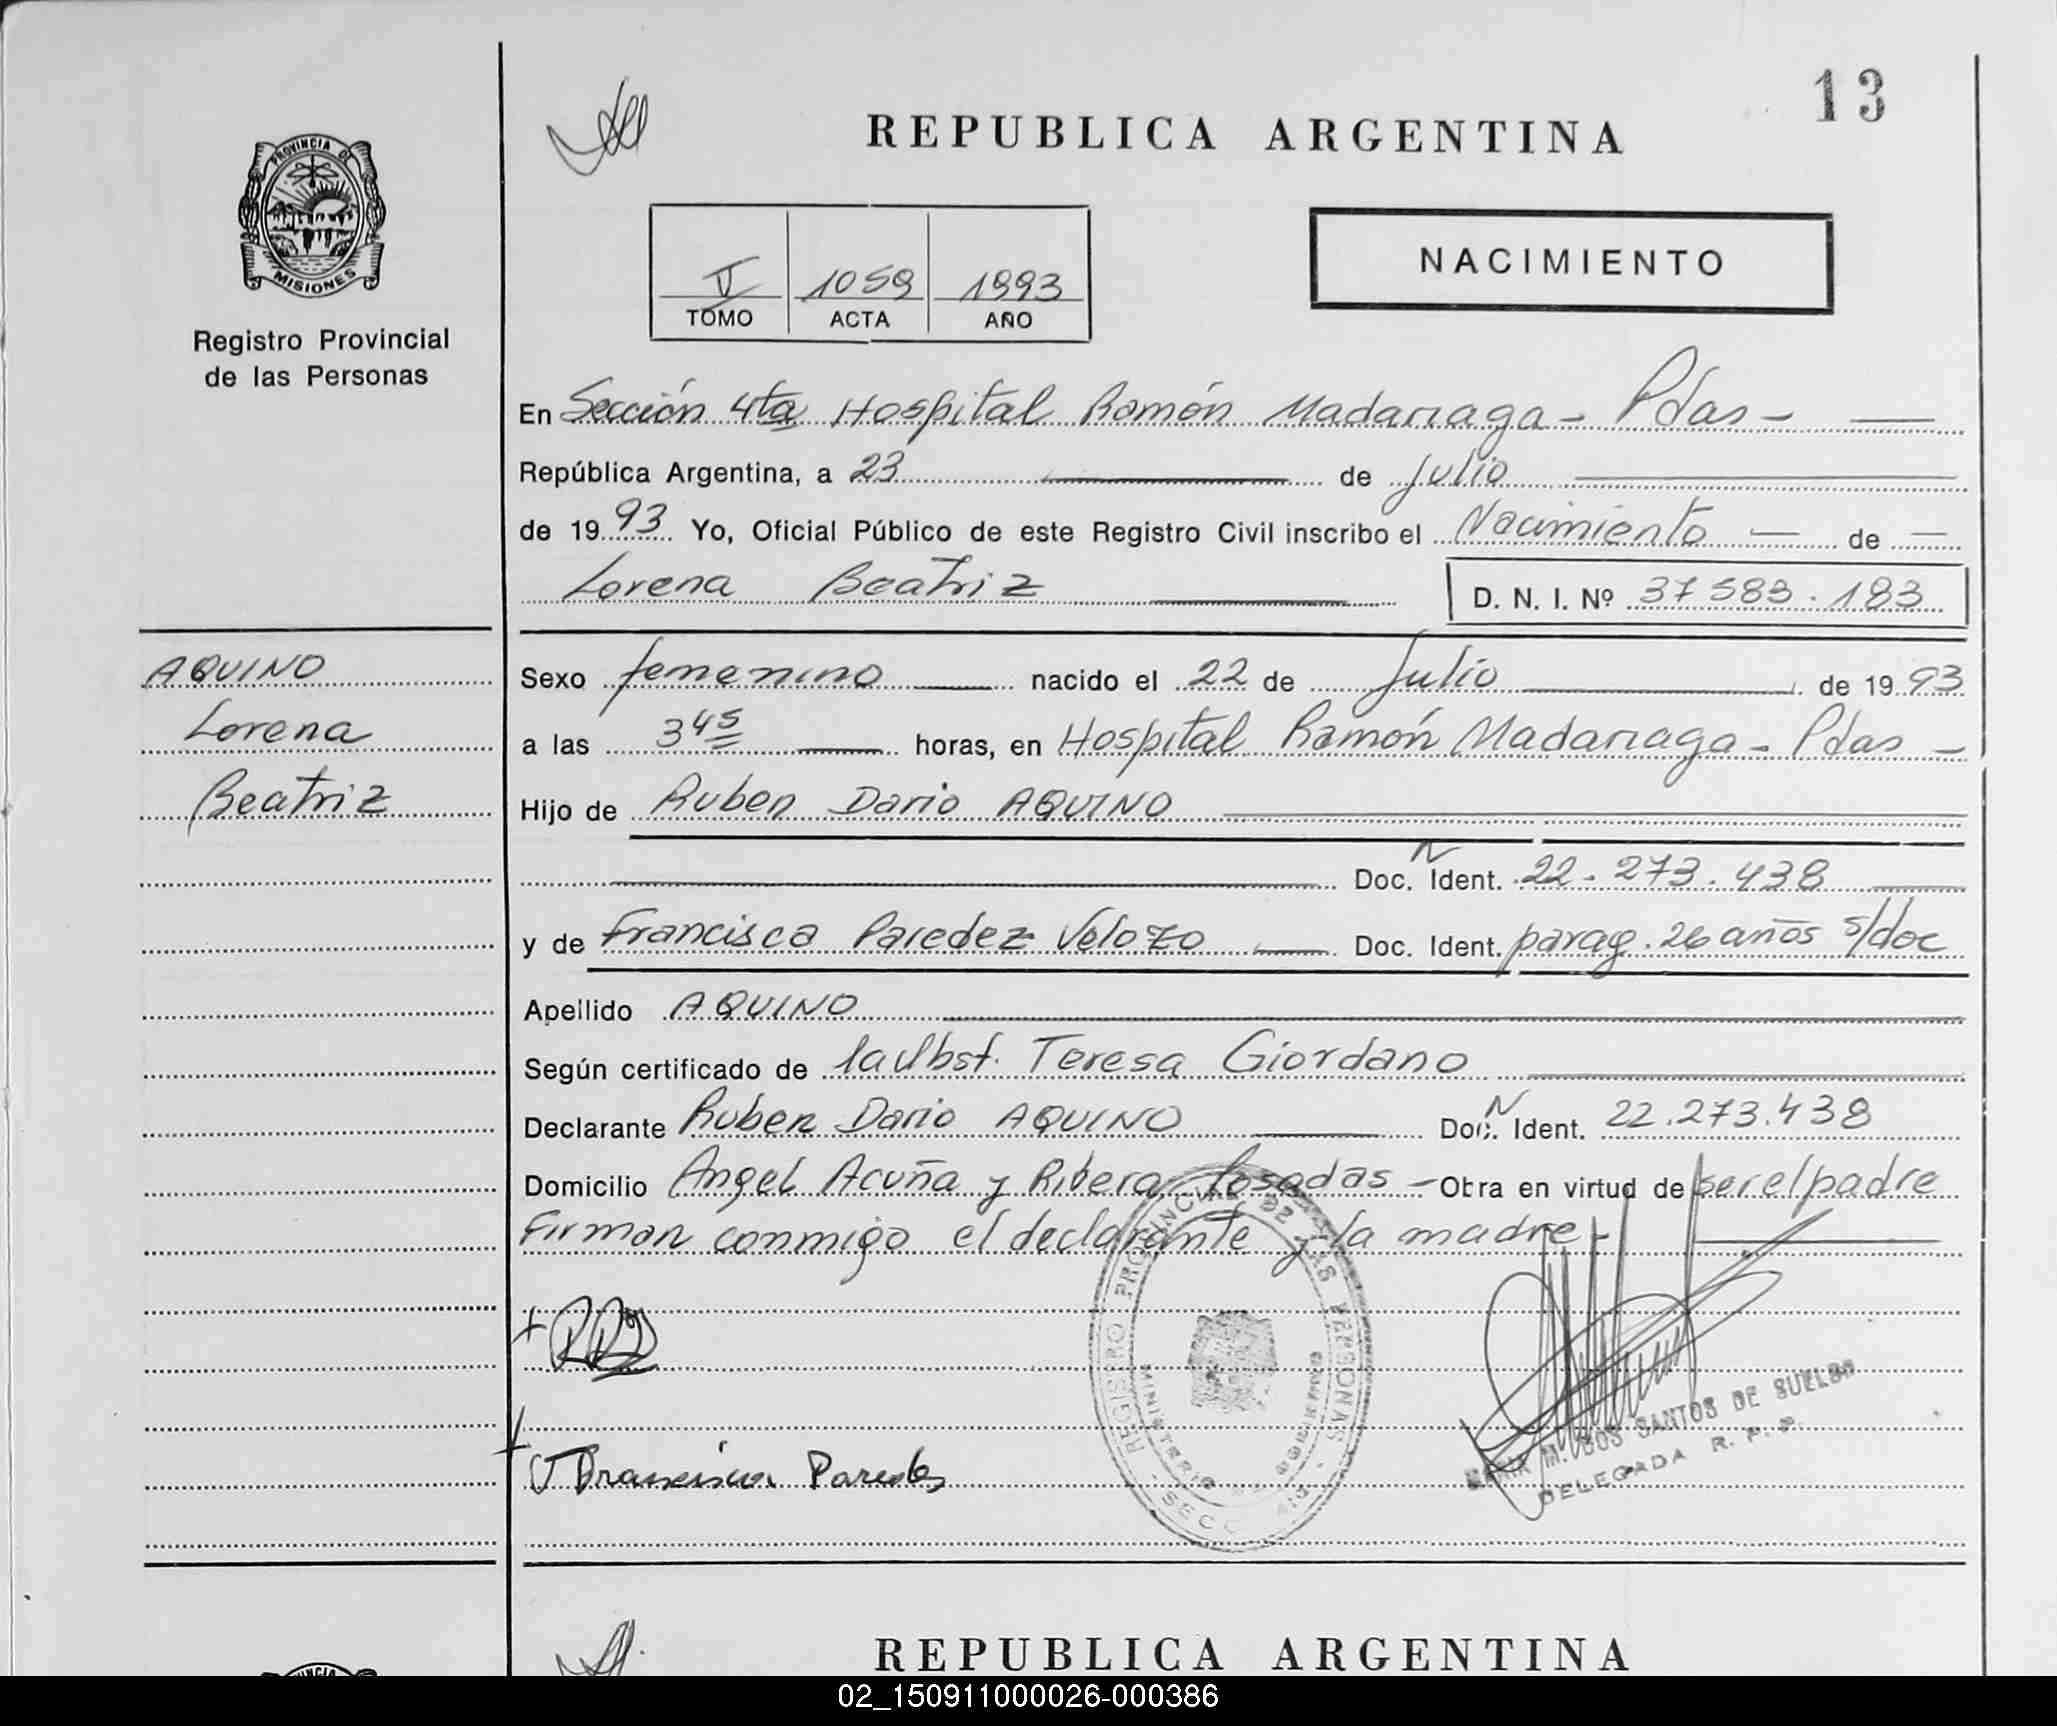 13
REPUBLICA ARGENTINA
PROVINCIA DE
MISIONES
NACIMIENTO
V 1059 1993
TOMO ACTA AÑO
Registro Provincial
de las Personas
En Sección 4ta Hospital Ramón Madariaga - Pdas -
República Argentina, a 23 de Julio
de 19 93 Yo, Oficial Público de este Registro Civil inscribo el Nacimiento de
Lorena Beatriz D. N. I. Nº 37583.183
AQUINO
Lorena
Beatriz
Sexo femenino nacido el 22 de Julio de 19 93
a las 3 45 horas, en Hospital Ramón Madariaga - Pdas -
Hijo de Ruben Dario AQUINO
N
Doc. Ident. 22.273.438
y de Francisca Paredez Velozo Doc. Ident. parag. 26 años s/doc
Apellido AQUINO
Según certificado de la Obst. Teresa Giordano
Declarante Ruben Dario AQUINO Doc. N Ident. 22.273.438
Domicilio Angel Acuña y Ribera Posadas - Obra en virtud de ser el padre
Firman conmigo el declarante y la madre -
REGISTRO PROVINCIAL DE LAS PERSONAS
MINISTERIO DE GOBIERNO
Francisca Paredes
MARIA M. DOS SANTOS DE SUELDO
DELEGADA R. P. P.
REPUBLICA ARGENTINA
02_150911000026-000386